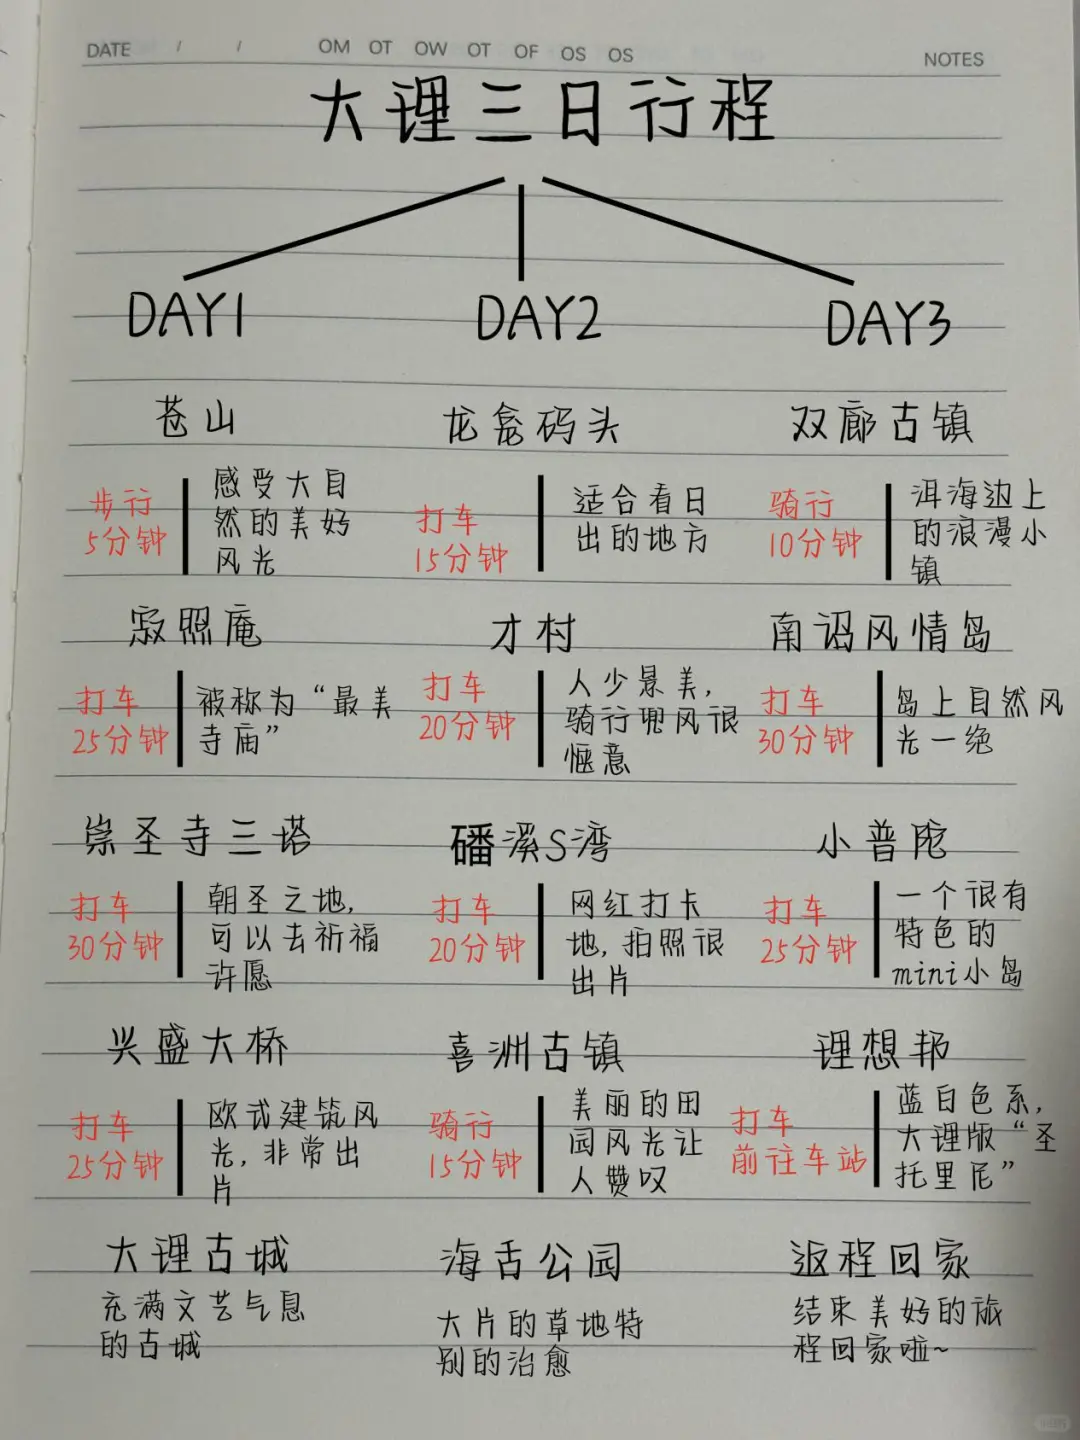 DATE / / OM OT OW OT OF OS OS NOTES
大理三日行程
DAY1
DAY2
DAY3
苍山
步行
5分钟
感受大自
然的美好
风光
寂照庵
打车
25分钟
被称为“最美
寺庙”
崇圣寺三塔
打车
30分钟
朝圣之地,
可以去祈福
许愿
兴盛大桥
打车
25分钟
欧式建筑风
光,非常出
片
大理古城
充满文艺气息
的古城
龙龛码头
打车
15分钟
适合看日
出的地方
才村
打车
20分钟
人少景美,
骑行兜风很
惬意
磻溪S湾
打车
20分钟
网红打卡
地,拍照很
出片
喜洲古镇
骑行
15分钟
美丽的田
园风光让
人赞叹
海舌公园
大片的草地特
别的治愈
双廊古镇
骑行
10分钟
洱海边上
的浪漫小
镇
南诏风情岛
打车
30分钟
岛上自然风
光一绝
小普陀
打车
25分钟
一个很有
特色的
mini小岛
理想邦
打车
前往车站
蓝白色系,
大理版“圣
托里尼”
返程回家
结束美好的旅
程回家啦~